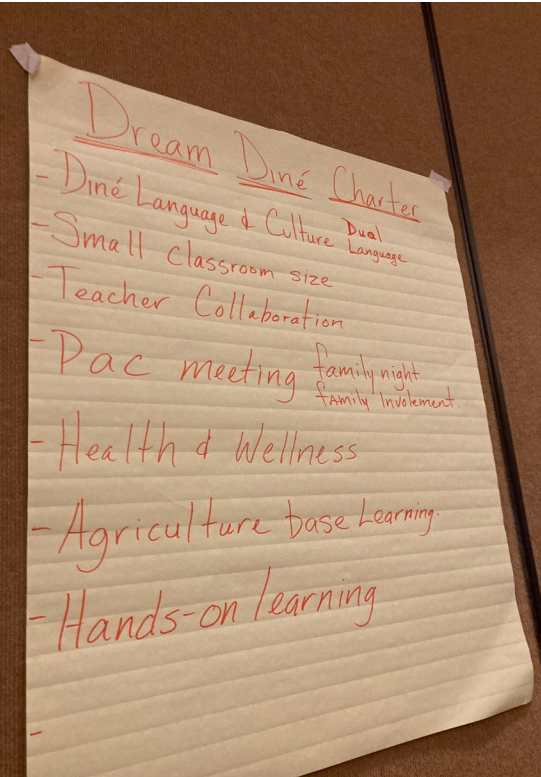 Dream Diné Charter
- Diné Language & Culture Dual Language
- Small classroom size
- Teacher Collaboration
- Pac meeting family night
family Involement.
- Health & Wellness
- Agriculture base Learning.
- Hands-on learning
-